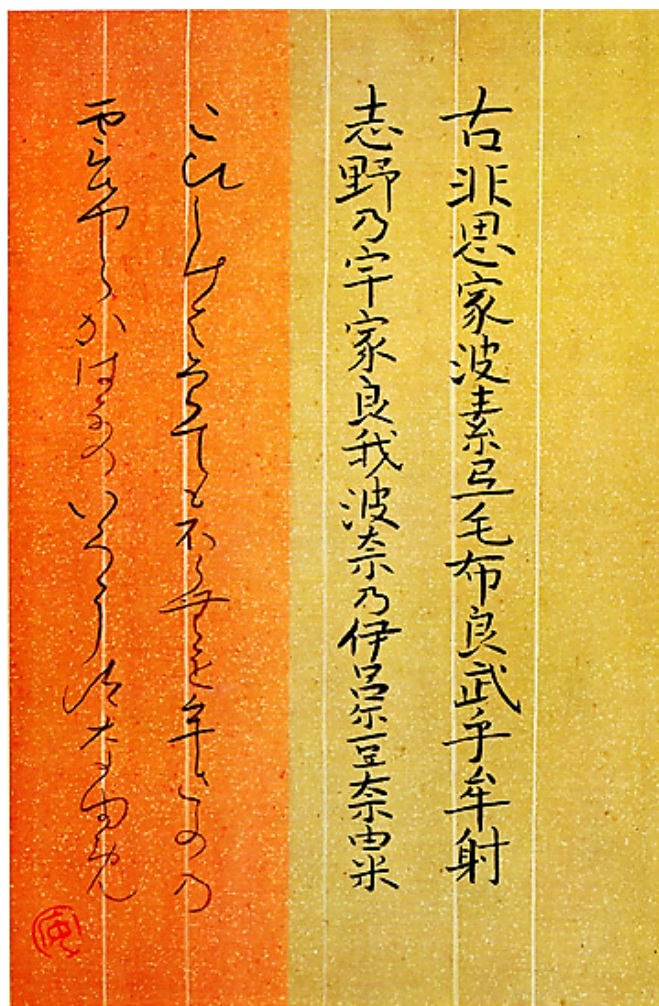 古非思家波素弖毛布良武乎牟射
志野乃宇家良我波奈乃伊呂尓豆奈由米
こひしけはそても不らむを牟さしの乃
うけらかはなのいろにつなゆめ